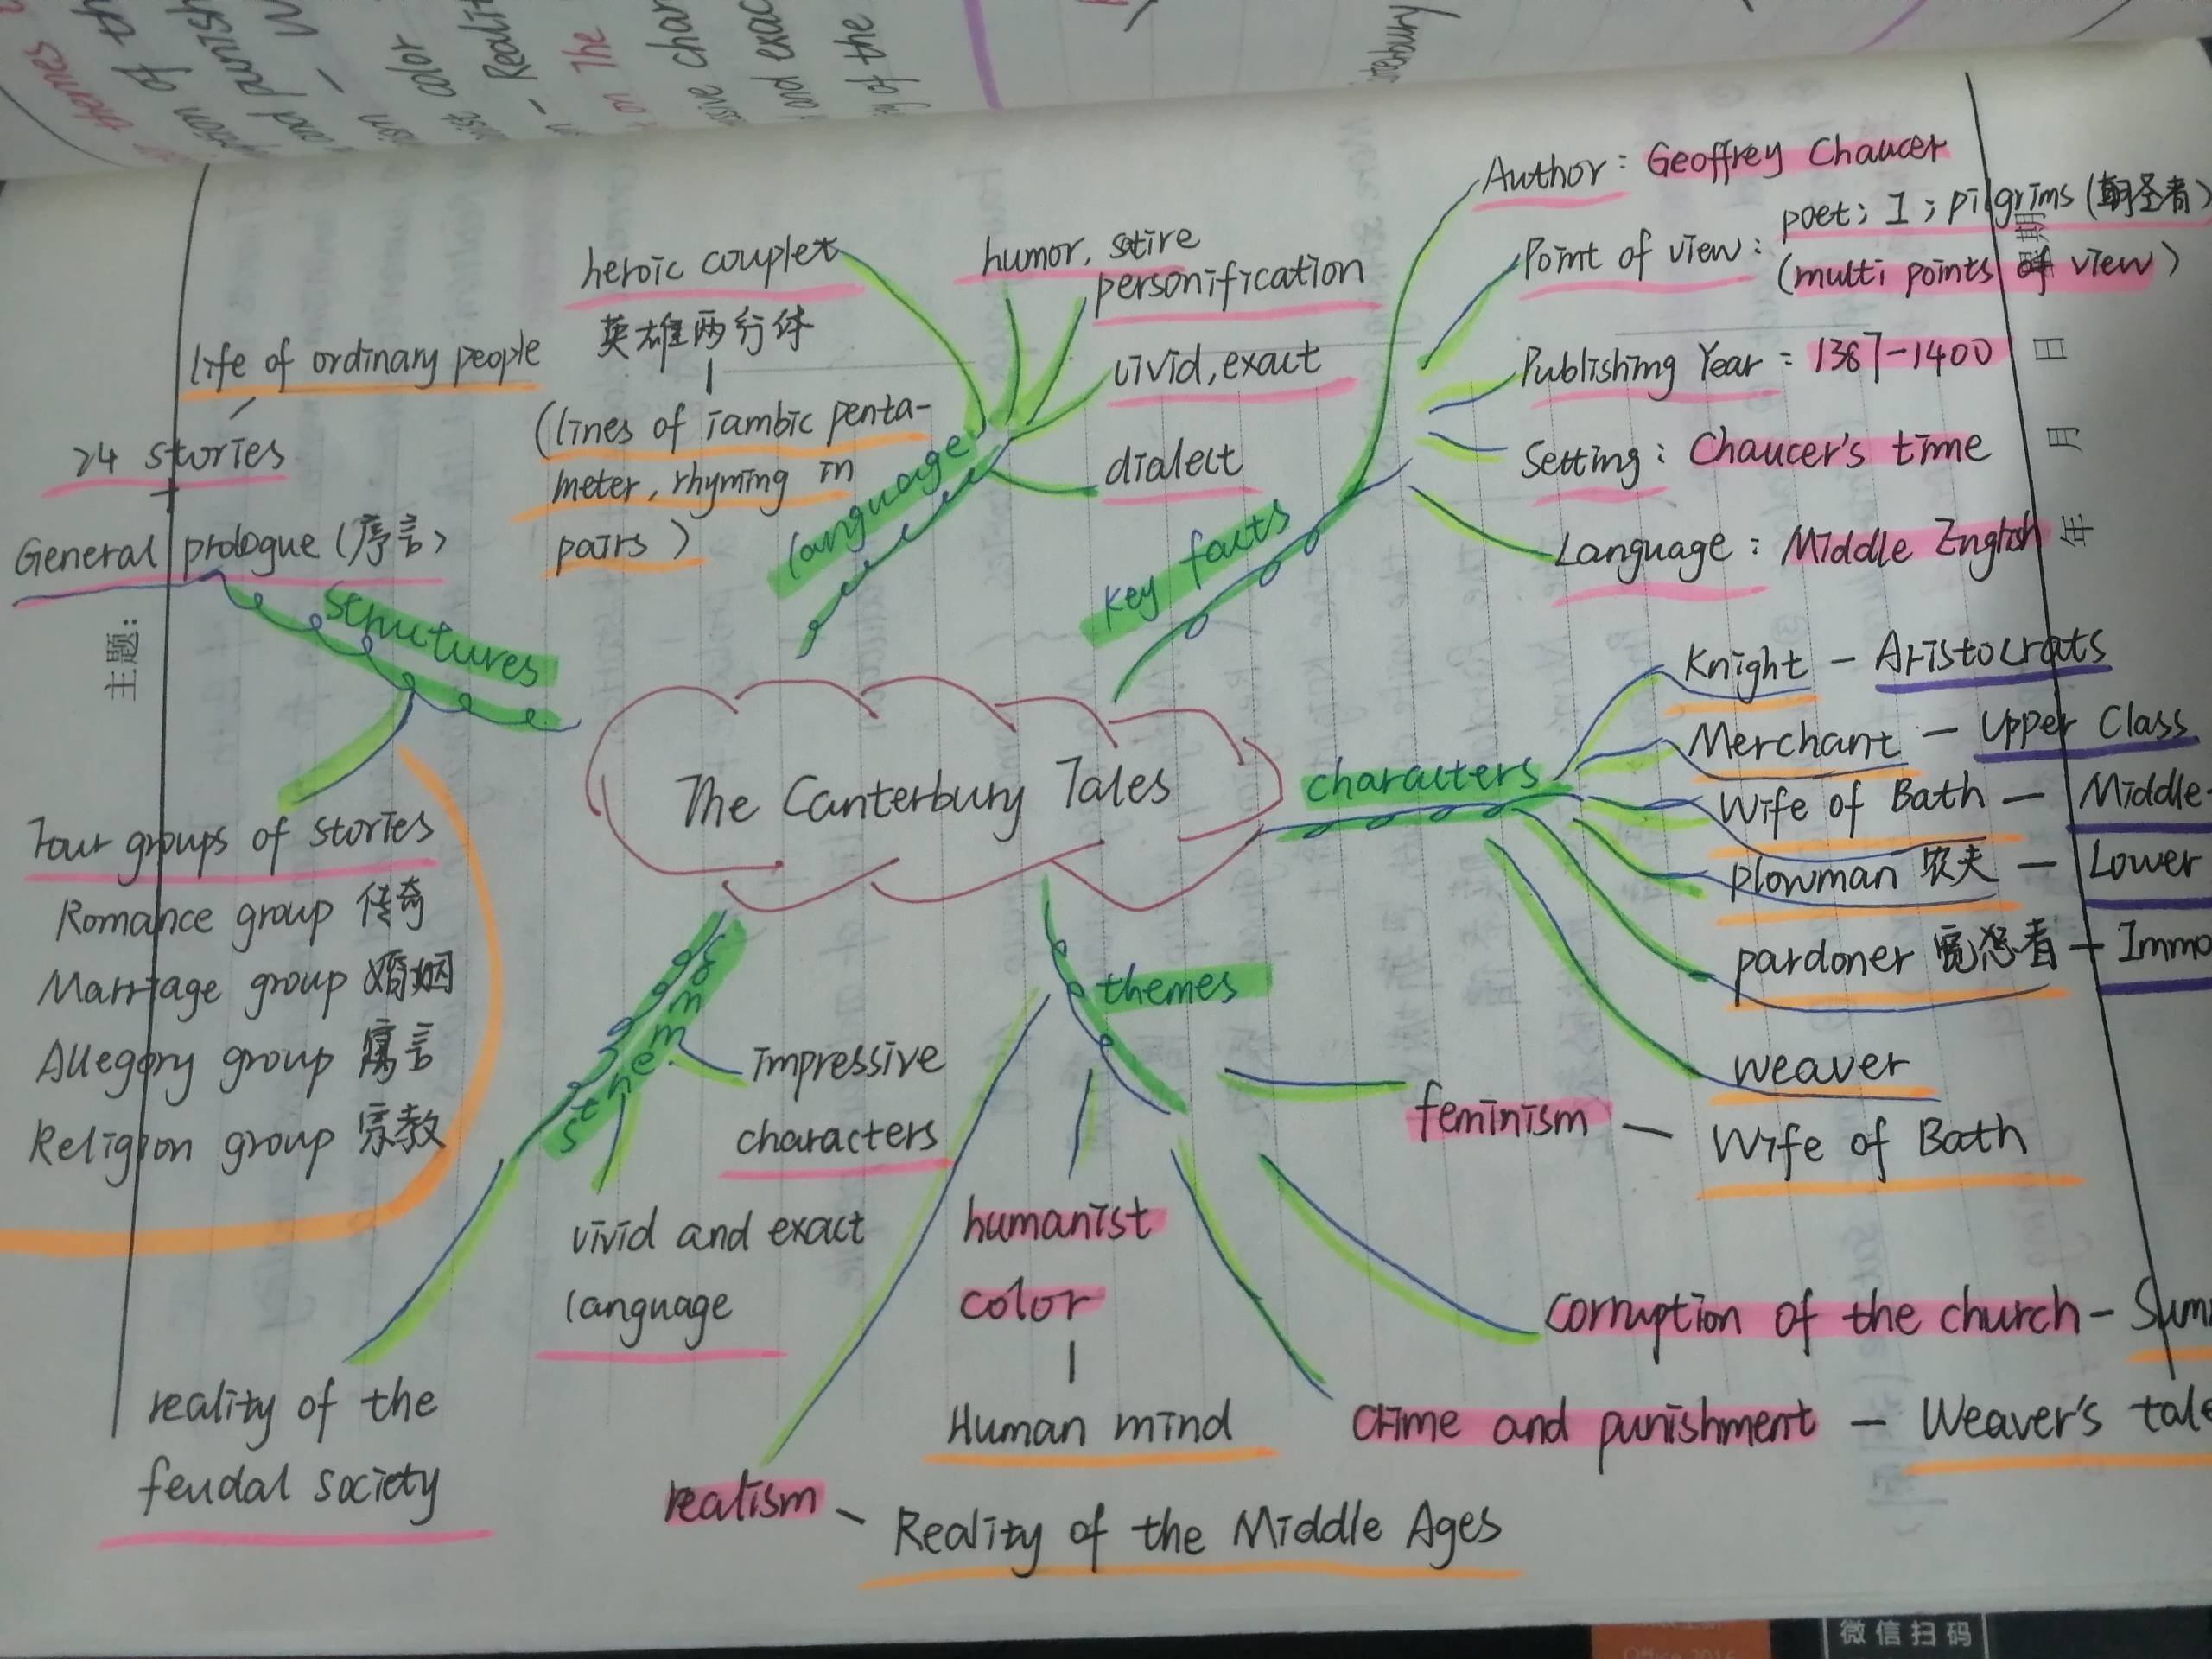 The Canterbury Tales
key facts
Author: Geoffrey Chaucer
Point of view: poet; I; pilgrims (朝圣者)
(multi points of view)
Publishing Year = 1387-1400
Setting: Chaucer's time
Language: Middle English
characters
Knight - Aristocrats
Merchant - Upper Class
Wife of Bath - Middle-
plowman 农夫 - Lower
pardoner 宽恕者 - Immo
weaver
themes
feminism - Wife of Bath
corruption of the church -
crime and punishment - Weaver's tale
humanist
color
Human mind
realism - Reality of the Middle Ages
impressive
characters
vivid and exact
language
reality of the
feudal society
structures
General prologue (序言)
+
24 stories
life of ordinary people
Four groups of stories
Romance group 传奇
Marriage group 婚姻
Allegory group 寓言
Religion group 宗教
language
heroic couplet
英雄两行体
(lines of iambic penta-
meter, rhyming in
pairs)
humor, satire
personification
vivid, exact
dialect
主题:
年
月
日
星期
themes
on The
and exac
of the
微信扫码
Office 2016